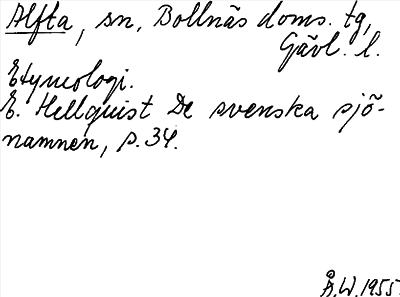 Alfta, sn, Bollnäs doms. tg,
Gävl. l.
Etymologi.
E. Hellquist De svenska sjö-
namnen, s. 34.
Å.W. 1955.